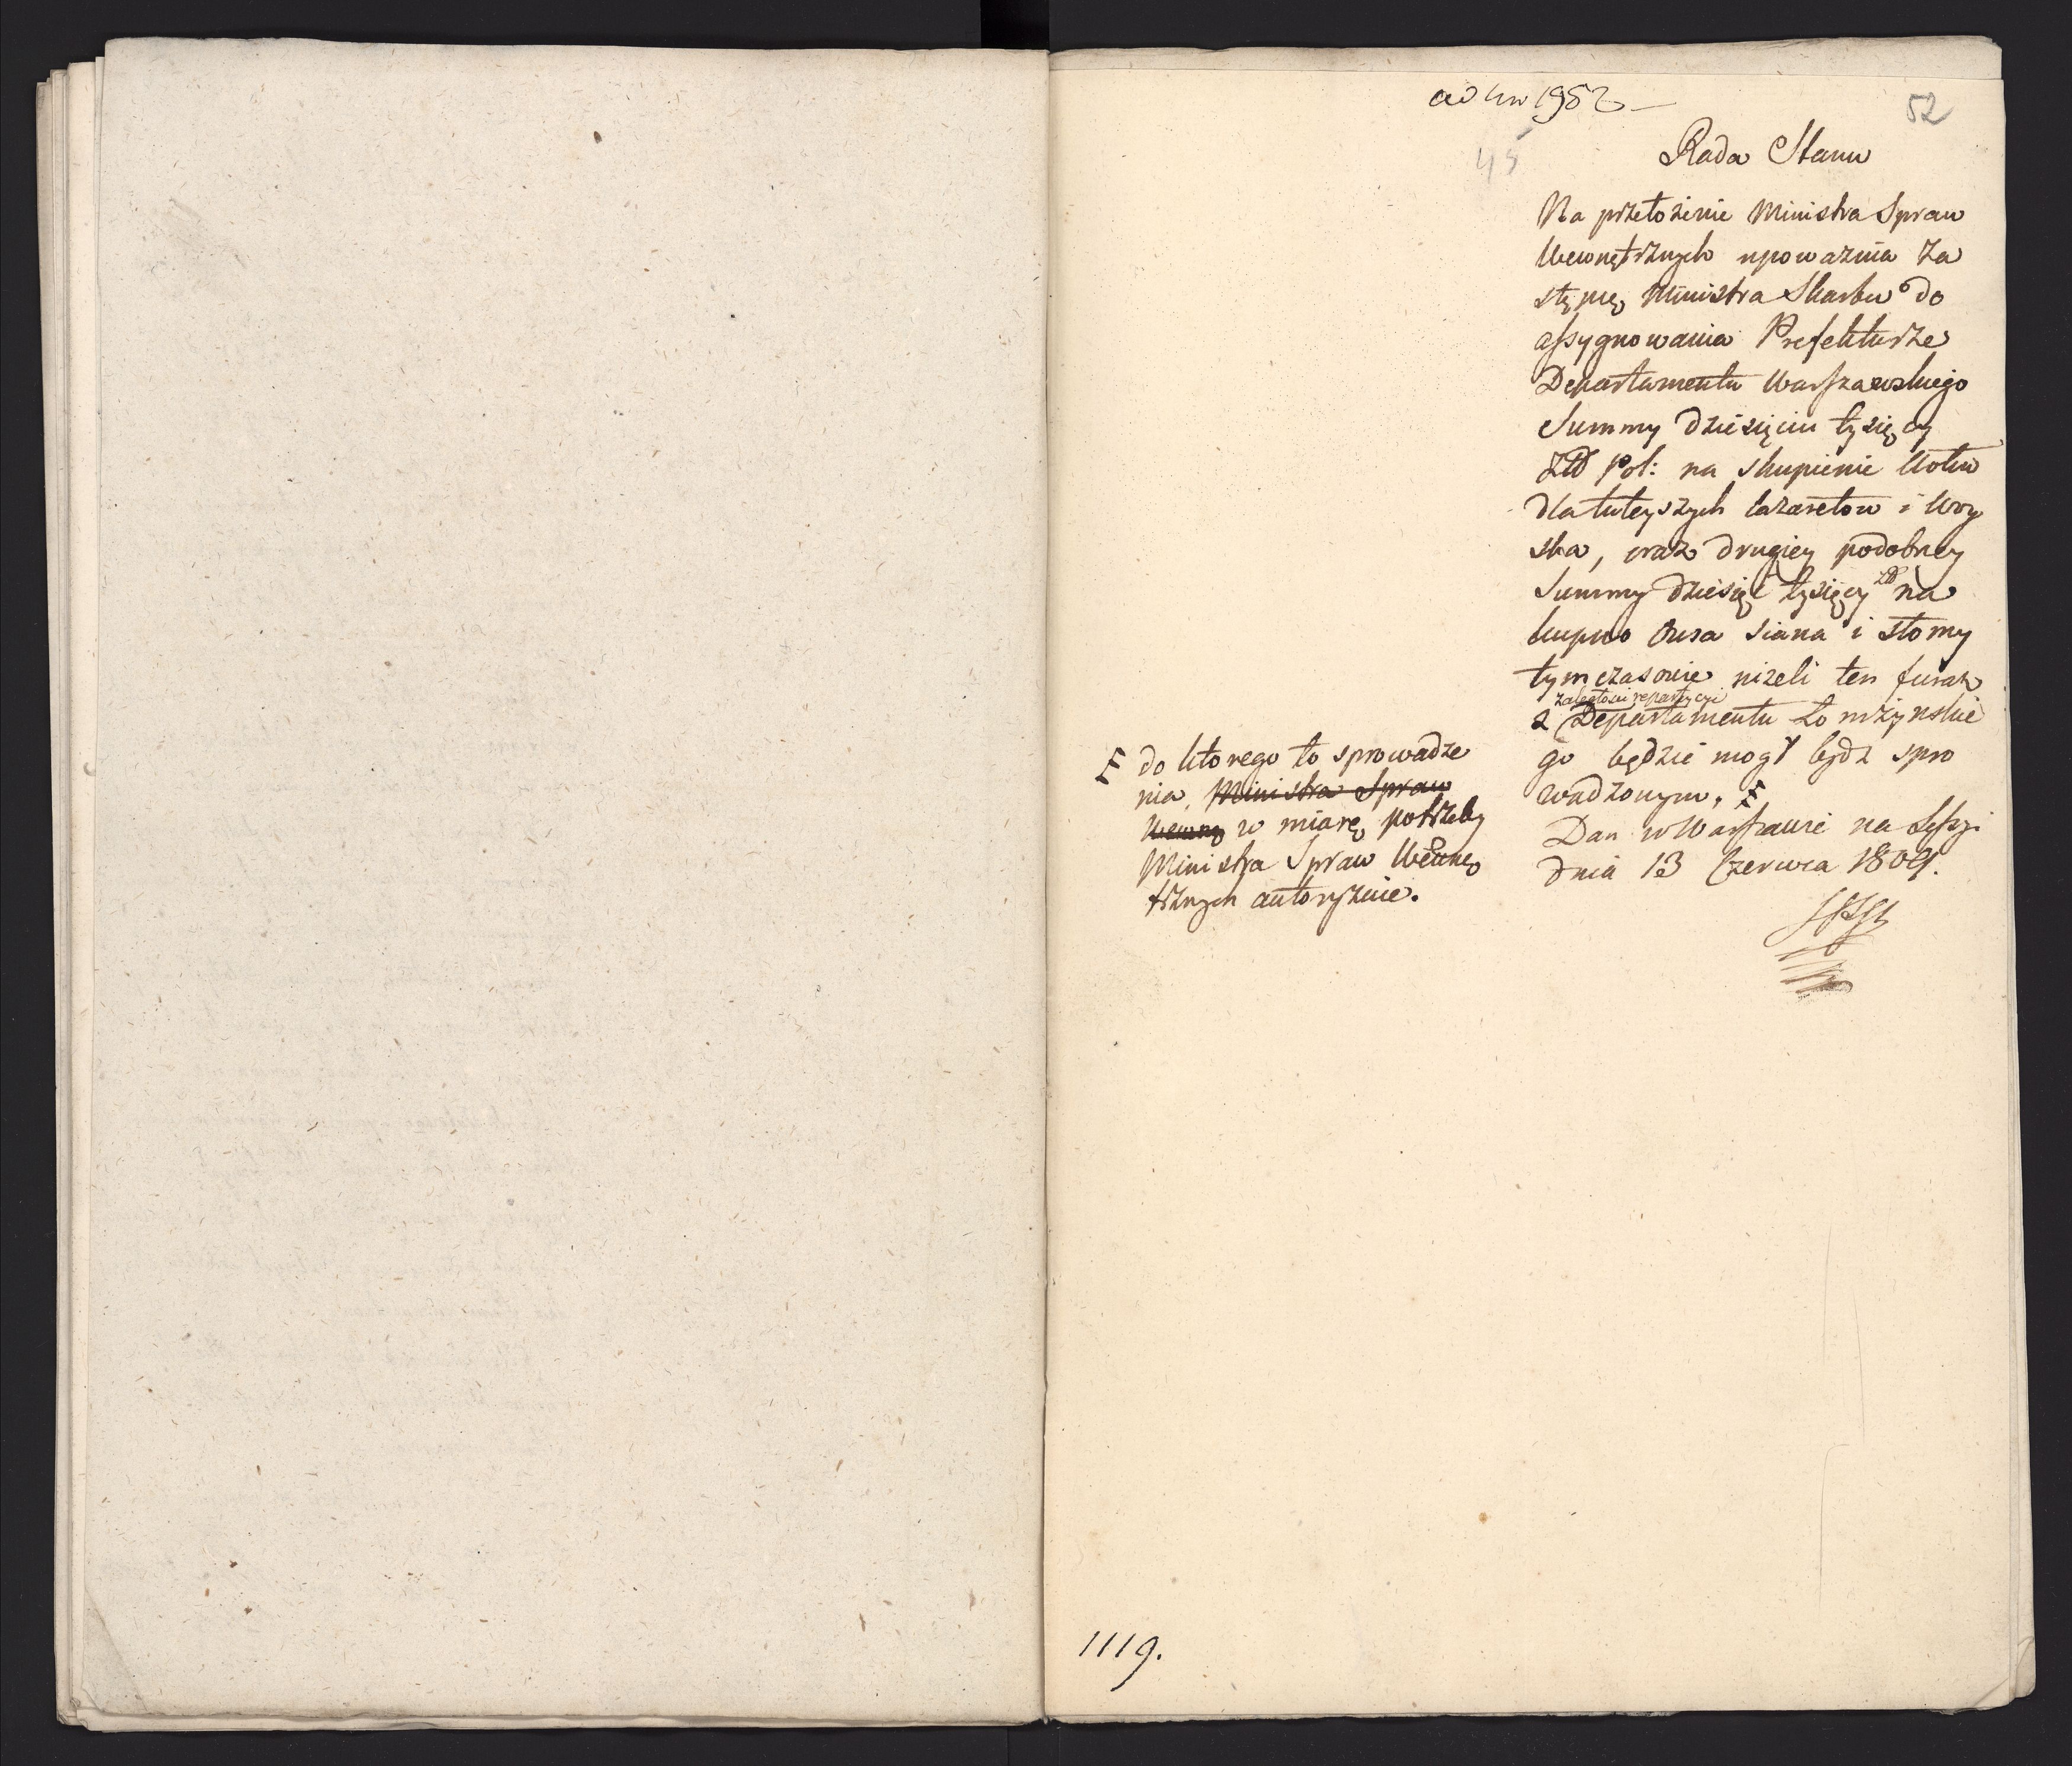 ad Nro 1952
52
45
Rada Stanu
Na przełożenie Ministra Spraw
Wewnętrznych upoważnia Za
stępcę Ministra Skarbu do
assygnowania Prefekturze
Departamentu Warszawskiego
Summy dziesięciu tysięcy
Złł Pol: na skupienie Wołów
dla tuteyszych lazaretow i Woy
ska, oraz drugiey podobney
Summy dziesięć tysięcy złł na
kupno Owsa siana i słomy
tymczasowie niżeli ten furaż
zaległości repartycyi
z Departamentu Łomżyńskie
go będzie mogł bydz spro
wadzonym, F
Dan w Warszawie na Sessyi
dnia 13 Czerwca 1809.
F do ktorego to sprowadze
nia, Ministra Spraw
Wewnę w miarę potrzeby
Ministra Spraw Wewnę
trznych autoryzuie.
1119.